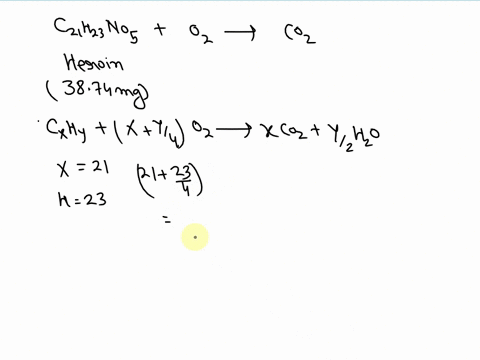 C₂₁H₂₃NO₅ + O₂ ⟶ CO₂
Heroin
(38.74mg)
CxHy + (X + Y/4) O₂ ⟶ XCO₂ + Y/2 H₂O
X = 21 (21 + 23/4)
H = 23
=